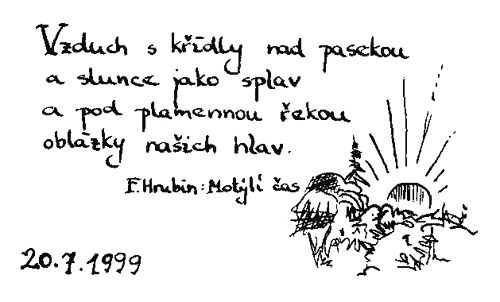 Vzduch s křídly nad pasekou
a slunce jako splav
a pod plamennou řekou
oblázky našich hlav.
F. Hrubín: Motýlí čas
20.7.1999